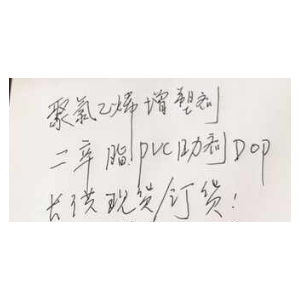 聚氯乙烯增塑剂
二辛脂PVC助剂DOP
大供现货/订货!